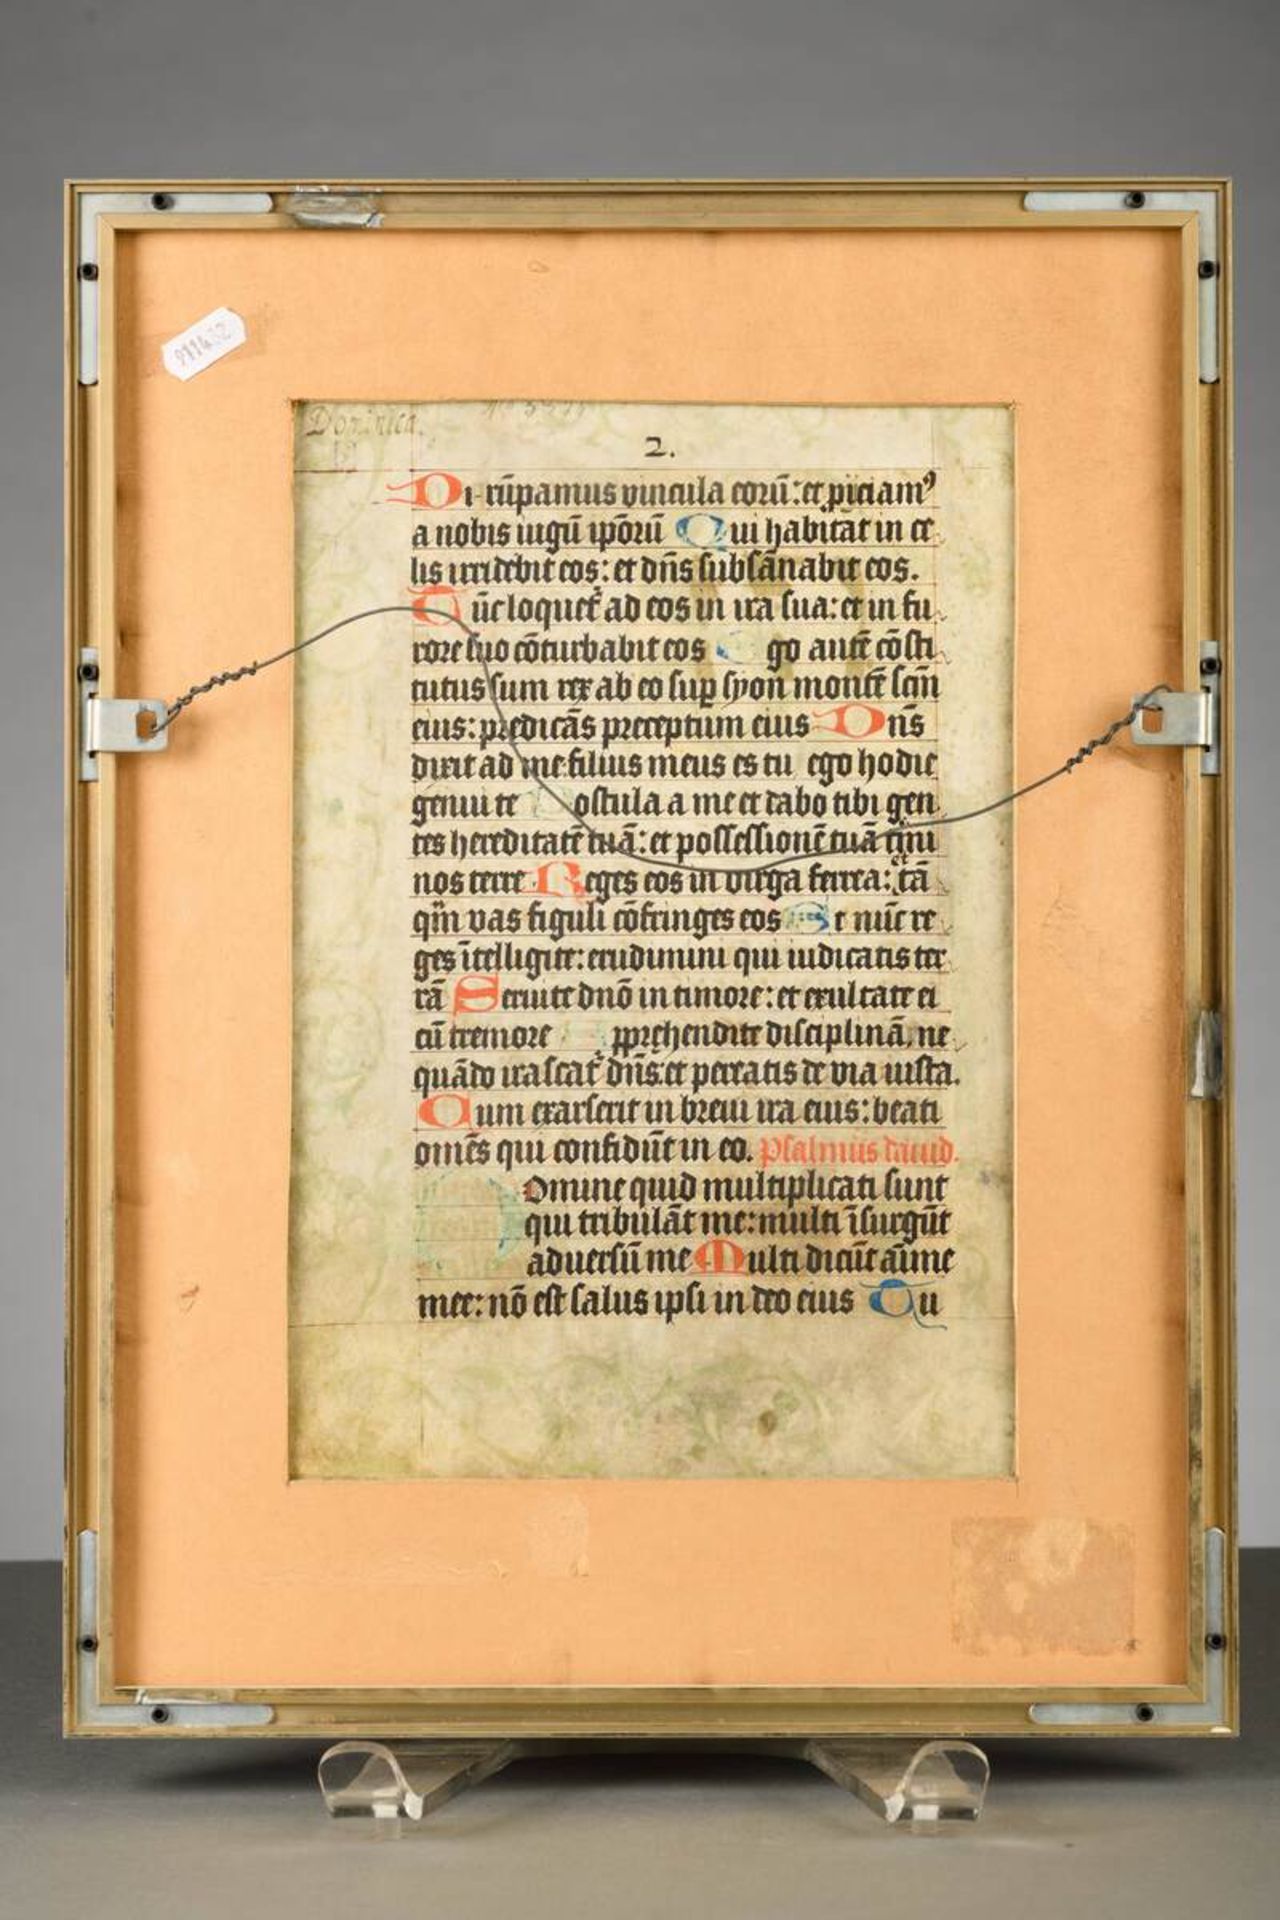 911432
Dominica.
2.
Di rūpamus vincula eorū: et piciamꝰ
a nobis iugū ip̄orū Qui habitat in ce
lis irridebit eos: et dn̄s subsānabit eos.
Tūc loquet᷑ ad eos in ira sua: et in fu
rore suo cōturbabit eos go autē cōsti
tutus sum rex ab eo suꝑ syon montē scm̄
eius: predicās preceptum eius Dn̄s
dixit ad me filius meus es tu ego hodie
genui te Postula a me et dabo tibi gen
tes hereditatē tuā: et possessionē tuā t̄mi
nos terre Reges eos in virga ferrea: et tā
qm̄ vas figuli cōfringes eos Et nūc re
ges ītelligite: erudimini qui iudicatis ter
rā Seruite dn̄o in timore: et exultate ei
cū tremore Apprehendite disciplinā, ne
quādo irascat᷑ dn̄s: et pereatis de via iusta.
Cum exarserit in breui ira eius: beati
omēs qui confidūt in eo. Psalmus dauid.
Domine quid multiplicati sunt
qui tribulāt me: multi īsurgūt
aduersū me Multi dicūt aīme
mee: nō est salus ipsi in deo eius Tu